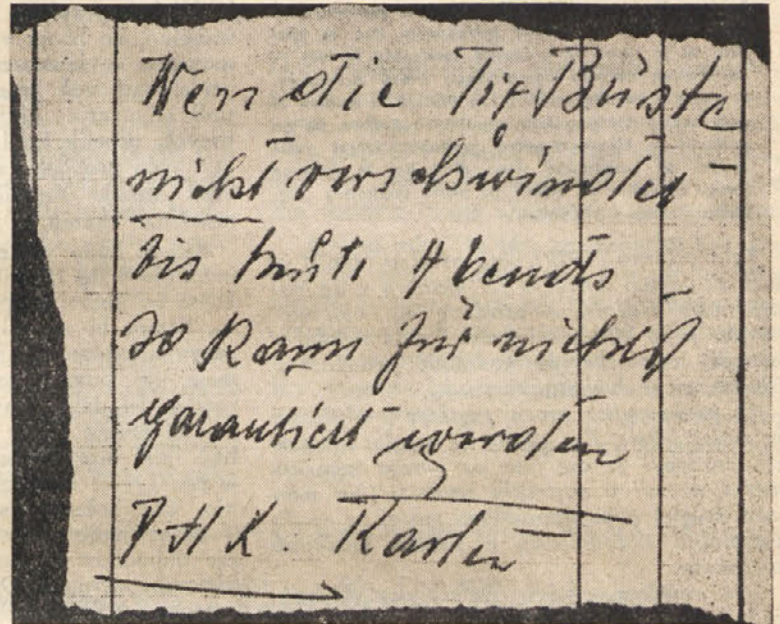 Wen die Tip Büste
nicht verschwindet
bis heute Abends
so kann für nichts
garantiert werden
P.H.K.